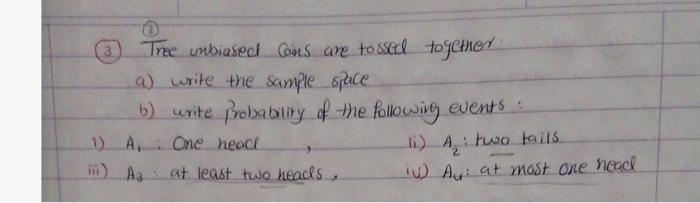 ③
③ Tree unbiased Coins are tossed together.
a) write the sample space
b) write Probability of the following events :
i) A₁ : One head , ii) A₂ : two tails
iii) A₃ : at least two heads , iv) A₄ : at most one head